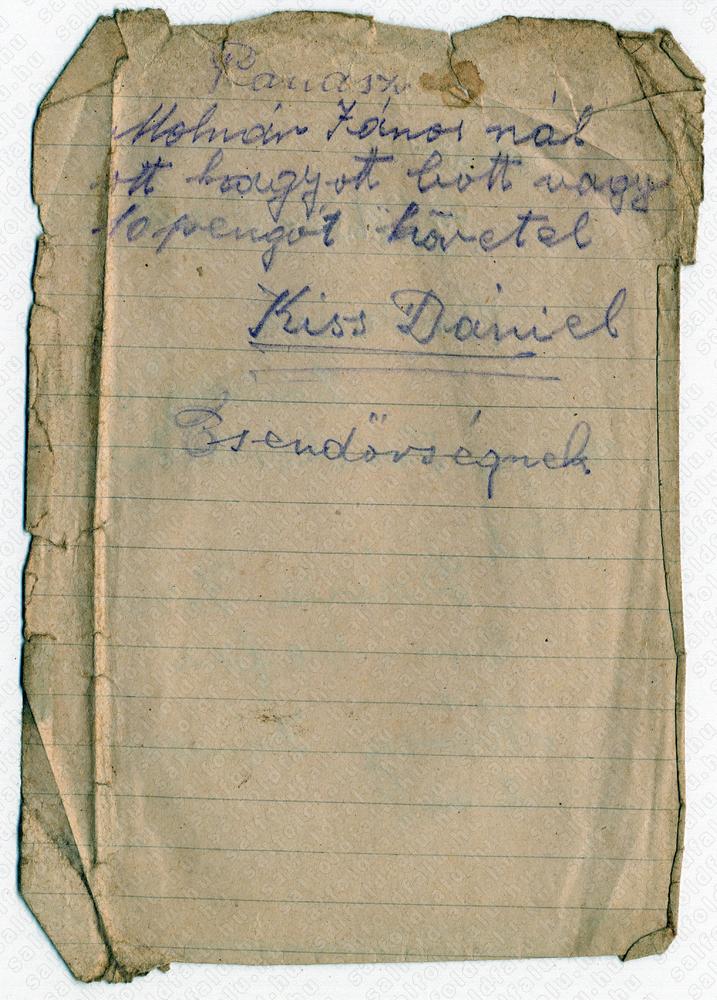 Panasz
Molnár János nál
ott hagyott bott vagy
10 pengőt követel
Kiss Dániel
Csendőrségnek